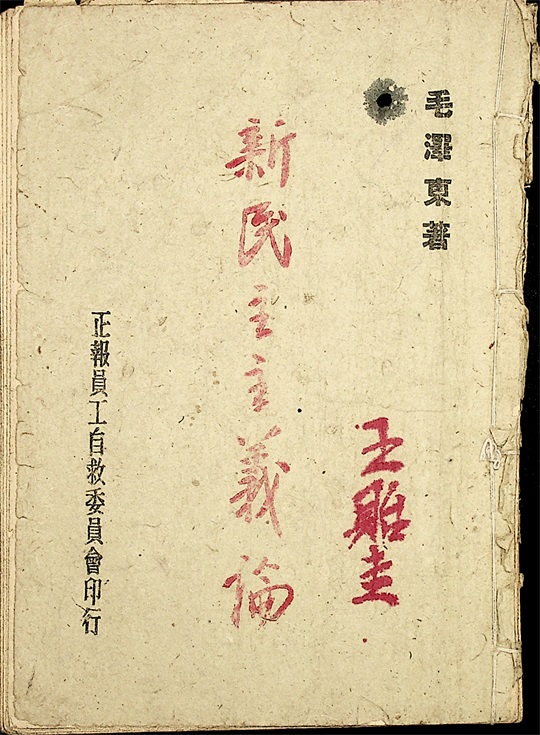 毛澤東著
新民主主義論
正報員工自救委員會印行